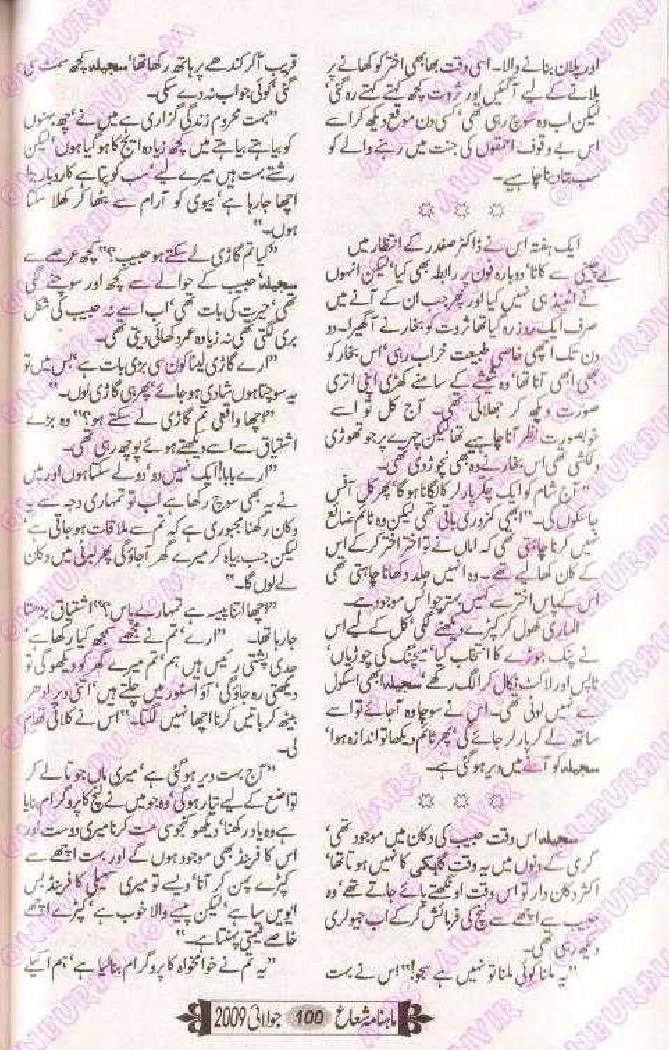 اور پلان بنانے والا۔ اسی وقت بھابھی اختر کو کھانے پر
بلانے کے لیے آ گئیں اور ثروت کچھ کہتے کہتے رہ گئی‘
لیکن اب وہ سوچ رہی تھی‘ کسی دن موقع دیکھ کر اسے
اس بے وقوف احمقوں کی جنت میں رہنے والے کو
سب بتا دینا چاہیے۔
ایک ہفتہ اس نے ڈاکٹر صفدر کے انتظار میں
بے چینی سے کاٹا‘ دوبارہ فون پر رابطہ بھی کیا‘ لیکن انہوں
نے اٹینڈ ہی نہیں کیا اور پھر جب ان کے آنے میں
صرف ایک روز رہ گیا تھا ثروت کو بخار نے آ گھیرا۔ دو
دن تک اچھی خاصی طبیعت خراب رہی‘ اس بخار کو
بھی ابھی آنا تھا‘ وہ شیشے کے سامنے کھڑی اپنی اتری
صورت دیکھ کر جھلائی تھی۔ آج کل تو اسے
خوبصورت نظر آنا چاہیے تھا لیکن چہرے پر جو تھوڑی
دلکشی تھی اس بخار نے وہ بھی نچوڑ دی تھی۔
”آج شام کو ایک چکر پارلر کا لگانا ہو گا‘ پھر کل آفس
جا سکوں گی۔“ ابھی کمزوری باقی تھی لیکن وہ ٹائم ضائع
نہیں کرنا چاہتی تھی کہ اماں نے تو اختر اختر کر کے اس
کے کان کھا لیے تھے۔ وہ انہیں جلد دکھانا چاہتی تھی
اس کے پاس اختر سے کہیں بہتر چوائس موجود ہے۔
الماری کھول کر کپڑے دیکھنے لگی‘ کل کے لیے اس
نے پنک جوڑے کا انتخاب کیا‘ میچنگ کی چوڑیاں‘
ٹاپس اور لاکٹ نکال کر الگ رکھے‘ سجیلہ ابھی اسکول
سے نہیں لوٹی تھی۔ اس نے سوچا وہ آ جائے تو اسے
ساتھ لے کر پارلر جائے گی‘ پھر ٹائم دیکھا تو اندازہ ہوا‘
سجیلہ کو آنے میں دیر ہو گئی ہے۔
سجیلہ اس وقت حبیب کی دکان میں موجود تھی‘
گرمی کے دنوں میں یہ وقت گاہکی کا نہیں ہوتا تھا‘
اکثر دکان دار تو اس وقت اونگھتے پائے جاتے تھے‘ وہ
حبیب سے اچھے سے لنچ کی فرمائش کر کے اب جیولری
دیکھ رہی تھی۔
”یہ ملنا کوئی ملنا تو نہیں ہے سجو!“ اس نے بہت
قریب آ کر کندھے پر ہاتھ رکھا تھا‘ سجیلہ کچھ سمٹ سی
گئی‘ کوئی جواب نہ دے سکی۔
”بہت محروم زندگی گزاری ہے میں نے‘ چھ بہنوں
کو بیاہتے بیاہتے میں کچھ زیادہ ایج کا ہو گیا ہوں‘ لیکن
رشتے بہت ہیں میرے لیے‘ سب کو پتا ہے کاروبار بڑا
اچھا جا رہا ہے‘ بیوی کو آرام سے بٹھا کر کھلا سکتا
ہوں۔“
”کیا تم گاڑی لے سکتے ہو حبیب؟“ کچھ عرصے سے
سجیلہ‘ حبیب کے حوالے سے کچھ اور سوچنے لگی
تھی‘ حیرت کی بات تھی‘ اب اسے نہ حبیب کی شکل
بری لگتی تھی نہ زیادہ عمر دکھائی دیتی تھی۔
”ارے گاڑی لینا کون سی بڑی بات ہے‘ بس میں تو
یہ سوچتا ہوں شادی ہو جائے‘ پھر ہی گاڑی لوں۔“
”اچھا واقعی تم گاڑی لے سکتے ہو؟“ وہ بڑے
اشتیاق سے اسے دیکھتے ہوئے پوچھ رہی تھی۔
”ارے بابا! ایک نہیں دو‘ دو لے سکتا ہوں اور میں
نے یہ بھی سوچ رکھا ہے اب تو تمہاری وجہ سے یہ
دکان رکھنا مجبوری ہے کہ تم سے ملاقات ہو جاتی ہے‘
لیکن جب بیاہ کر میرے گھر آ جاؤ گی پھر لبرٹی میں دکان
لے لوں گا۔“
”اچھا اتنا پیسہ ہے تمہارے پاس؟“ اشتیاق بڑھتا
جا رہا تھا۔ ”ارے‘ تم نے مجھے سمجھ کیا رکھا ہے‘
جدی پشتی رئیس ہیں ہم‘ تم میرے گھر کو دیکھو گی تو
دیکھتی رہ جاؤ گی‘ آؤ اسٹور میں چلتے ہیں‘ اتنی دیر ادھر
بیٹھ کر باتیں کرنا اچھا نہیں لگتا۔“ اس نے کلائی تھام
لی۔
”آج بہت دیر ہو گئی ہے‘ میری ماں جوتا لے کر
تواضع کے لیے تیار ہو گی‘ وہ جو میں نے لنچ کا پروگرام بنایا
ہے وہ یاد رکھنا‘ دیکھو کنجوسی مت کرنا میری دوست اور
اس کا فرینڈ بھی موجود ہوں گے اور بہت اچھے سے
کپڑے پہن کر آنا‘ ویسے تو میری سہیلی کا فرینڈ بس
ایویں سا ہے‘ لیکن پیسے والا خوب ہے‘ کپڑے اچھے
خاصے قیمتی پہنتا ہے۔“
”یہ تم نے خوامخواہ کا پروگرام بنا لیا ہے‘ ہم اکیلے
ماہنامہ شعاع 100 جولائی 2009